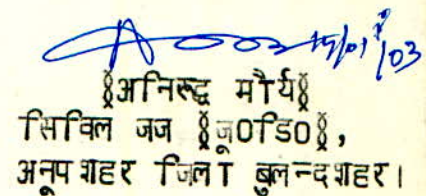 15/01/03
(अनिरूद्ध मौर्य)
सिविल जज (जू0डि0),
अनूपशहर जिला बुलन्दशहर।